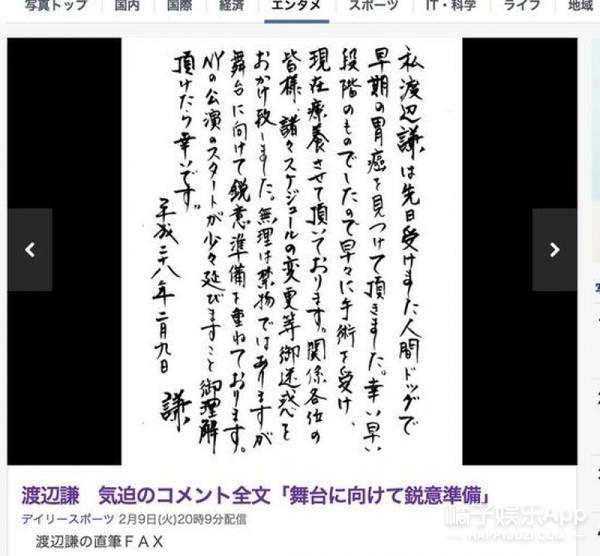 写真トップ 国内 国際 経済 エンタメ スポーツ IT・科学 ライフ 地域
私渡辺謙は先日受けました人間ドッグで
早期の胃癌を見つけて頂きました。幸い早い
段階のものでしたので早々に手術を受け、
現在療養させて頂いております。関係各位の
皆様、諸々スケジュールの変更等御迷惑を
おかけ致しました。無理は禁物ではありますが
舞台に向けて鋭意準備を重ねております。
NYの公演のスタートが少々延びますこと御理解
頂けたら幸いです。
平成二十八年二月九日
謙
渡辺謙 気迫のコメント全文「舞台に向けて鋭意準備」
デイリースポーツ 2月9日(火)20時9分配信
渡辺謙の直筆ＦＡＸ
橘子娱乐App
HAPPYJUZI.COM